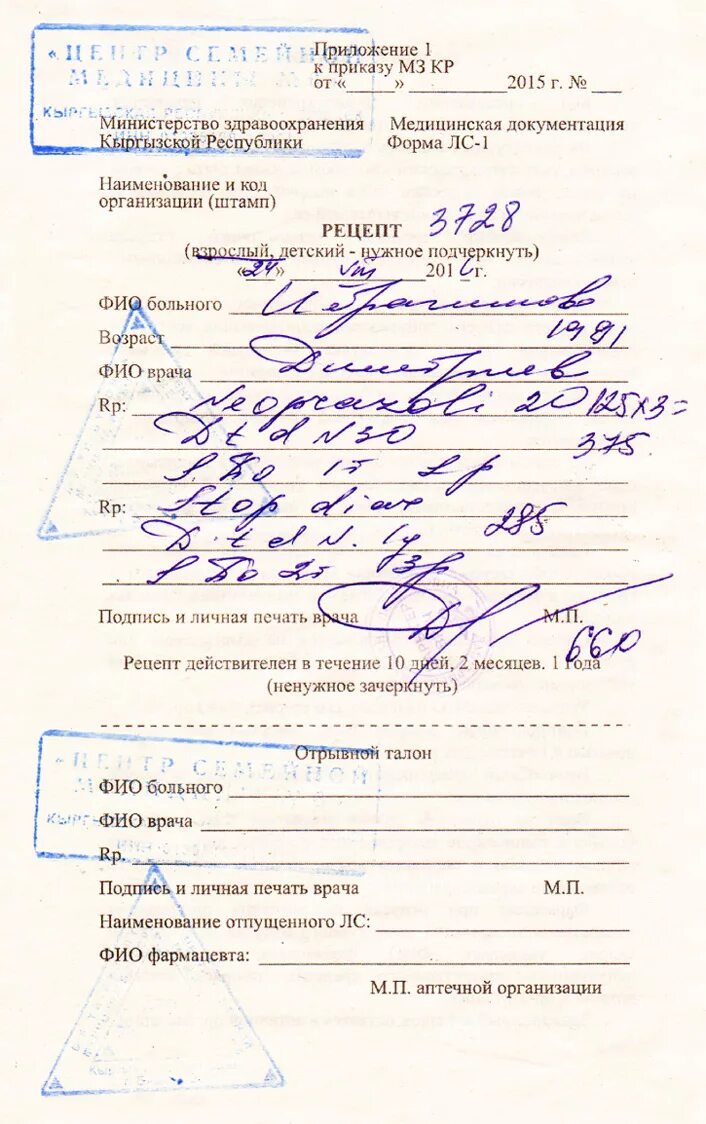 «ЦЕНТР СЕМЕЙНОЙ
МЕДИЦИНЫ
КЫРГЫЗСКАЯ
Приложение 1
к приказу МЗ КР
от «_____» __________2015 г. № ___
Министерство здравоохранения
Кыргызской Республики
Медицинская документация
Форма ЛС-1
Наименование и код
организации (штамп)
РЕЦЕПТ 3728
(взрослый, детский - нужное подчеркнуть)
«24» VIII 2016г.
ФИО больного
Возраст 1991
ФИО врача
Rp: Neoprazoli 20 125x3=
D t d N30 375
S. По 1т 2р
Rp: Stop diar
D. t d N. 285
S По 2т 3р
Подпись и личная печать врача М.П.
660
Рецепт действителен в течение 10 дней, 2 месяцев. 1 года
(ненужное зачеркнуть)
Отрывной талон
«ЦЕНТР СЕМЕЙНОЙ
ФИО больного
ФИО врача
Rp.
Подпись и личная печать врача М.П.
Наименование отпущенного ЛС:
ФИО фармацевта:
М.П. аптечной организации